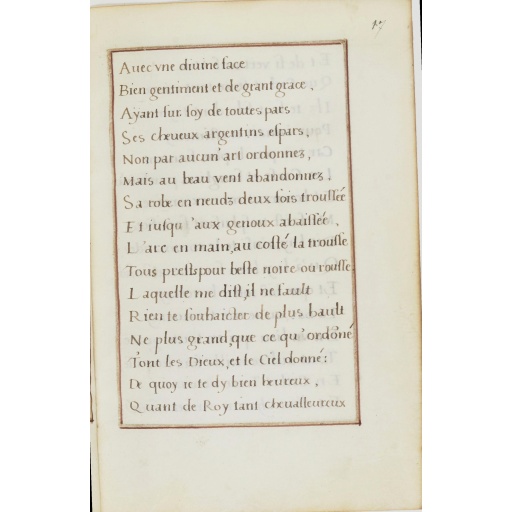 17
Auec vne diuine face
Bien gentiment et de grant grace,
Ayant sur soy de toutes pars
Ses cheueux argentins espars,
Non par aucun' art ordonnez,
Mais au beau vent abandonnez.
Sa robe en neudz deux fois troussée
Et iusqu'aux genoux abaissée,
L'arc en main, au costé la trousse
Tous prestz pour beste noire ou rousse.
Laquelle me dist, il ne fault
Rien te souhaicter de plus hault
Ne plus grand, que ce qu'ordōné
T'ont les Dieux, et le Ciel donné:
De quoy ie te dy bien heureux,
Quant de Roy tant cheualleureux